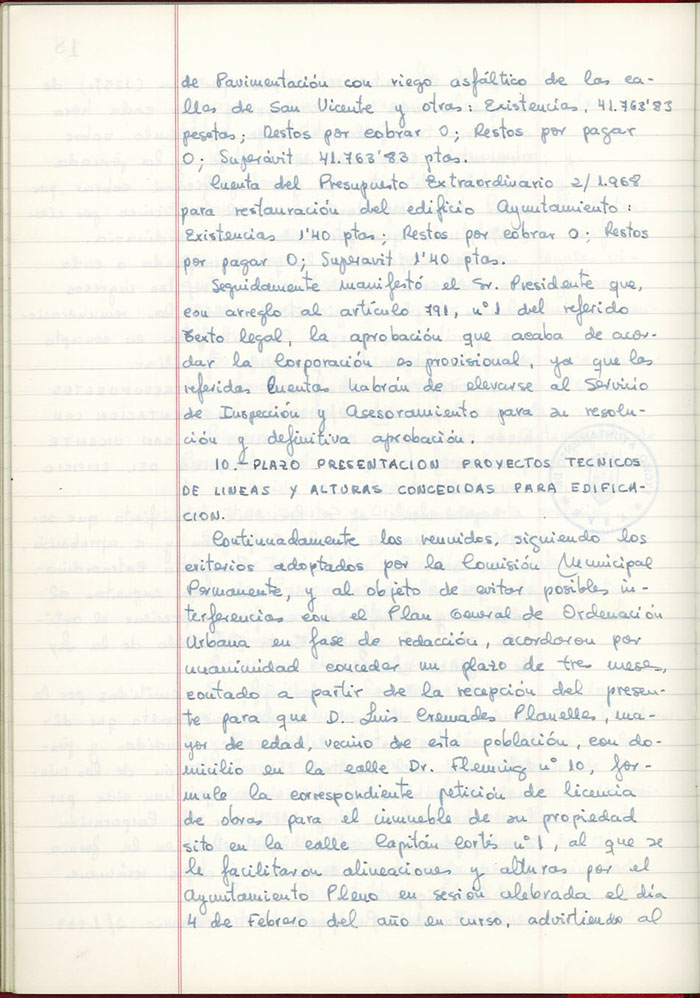 de Pavimentación con riego asfáltico de las ca-
lles de San Vicente y otras: Existencias, 41.763'83
pesetas; Restos por cobrar 0; Restos por pagar
0; Superávit 41.763'83 ptas.
Cuenta del Presupuesto Extraordinario 2/1.968
para restauración del edificio Ayuntamiento:
Existencias 1'40 ptas; Restos por cobrar 0; Restos
por pagar 0; Superavit 1'40 ptas.
Seguidamente manifestó el Sr. Presidente que,
con arreglo al artículo 791, nº 1 del referido
Texto legal, la aprobación que acaba de acor-
dar la Corporación es provisional, ya que las
referidas Cuentas habrán de elevarse al Servicio
de Inspección y Asesoramiento para su resolu-
ción y definitiva aprobación.
10.- PLAZO PRESENTACION PROYECTOS TECNICOS
DE LINEAS Y ALTURAS CONCEDIDAS PARA EDIFICA-
CION.
Continuadamente los reunidos, siguiendo los
criterios adoptados por la Comisión Municipal
Permanente, y al objeto de evitar posibles in-
terferencias con el Plan General de Ordenación
Urbana en fase de redacción, acordaron por
unanimidad conceder un plazo de tres meses,
contado a partir de la recepción del presen-
te para que D. Luis Cremades Planelles, ma-
yor de edad, vecino de esta población, con do-
micilio en la calle Dr. Fleming nº 10, for-
mule la correspondiente petición de licencia
de obras para el inmueble de su propiedad
sito en la calle Capitán Cortés nº 1, al que se
le facilitaron alineaciones y alturas por el
Ayuntamiento Pleno en sesión celebrada el día
4 de Febrero del año en curso, advirtiendo al